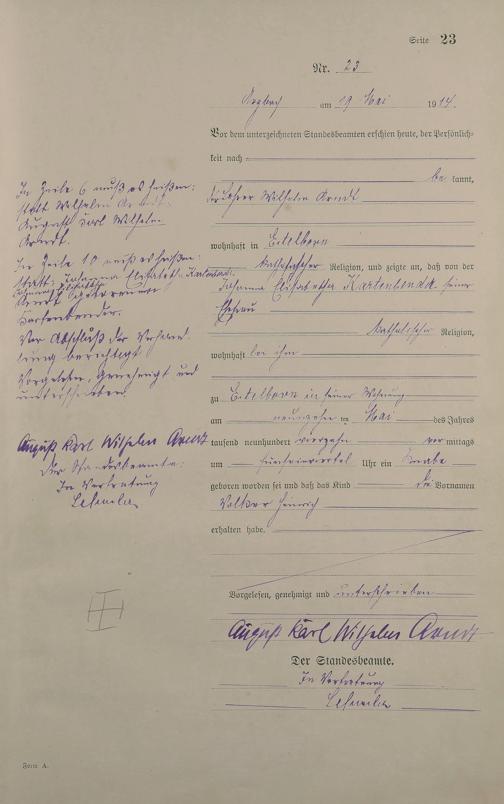 Seite 23
Nr. 23
Arzbach am 19 Mai 1914.
Vor dem unterzeichneten Standesbeamten erschien heute, der Persönlich-
keit nach
be kannt,
der Lehrer Wilhelm Arndt
wohnhaft in Eitelborn
katholischer Religion, und zeigte an, daß von der
Johanna Elisabetha Kartenbender seiner
Ehefrau
katholischer Religion,
wohnhaft bei ihm
zu Eitelborn in seiner Wohnung
am neunzehn ten Mai des Jahres
tausend neunhundert vierzehn vor mittags
um Uhr ein Knabe
geboren worden sei und daß das Kind die Vornamen
Volker Heinrich
erhalten habe.
Vorgelesen, genehmigt und unterschrieben
August Karl Wilhelm Arndt
Der Standesbeamte.
In Vertretung
In Zeile 6 muß es heißen:
statt Wilhelm Arndt
August Karl Wilhelm
Arndt.
In Zeile 10 muß es heißen:
statt: Johanna Elisabeth
Vor Abschluß der Verhand
lung berichtigt
Vorgelesen, genehmigt und
unterschrieben
August Karl Wilhelm Arndt
Der Standesbeamte:
In Vertretung
Form A.